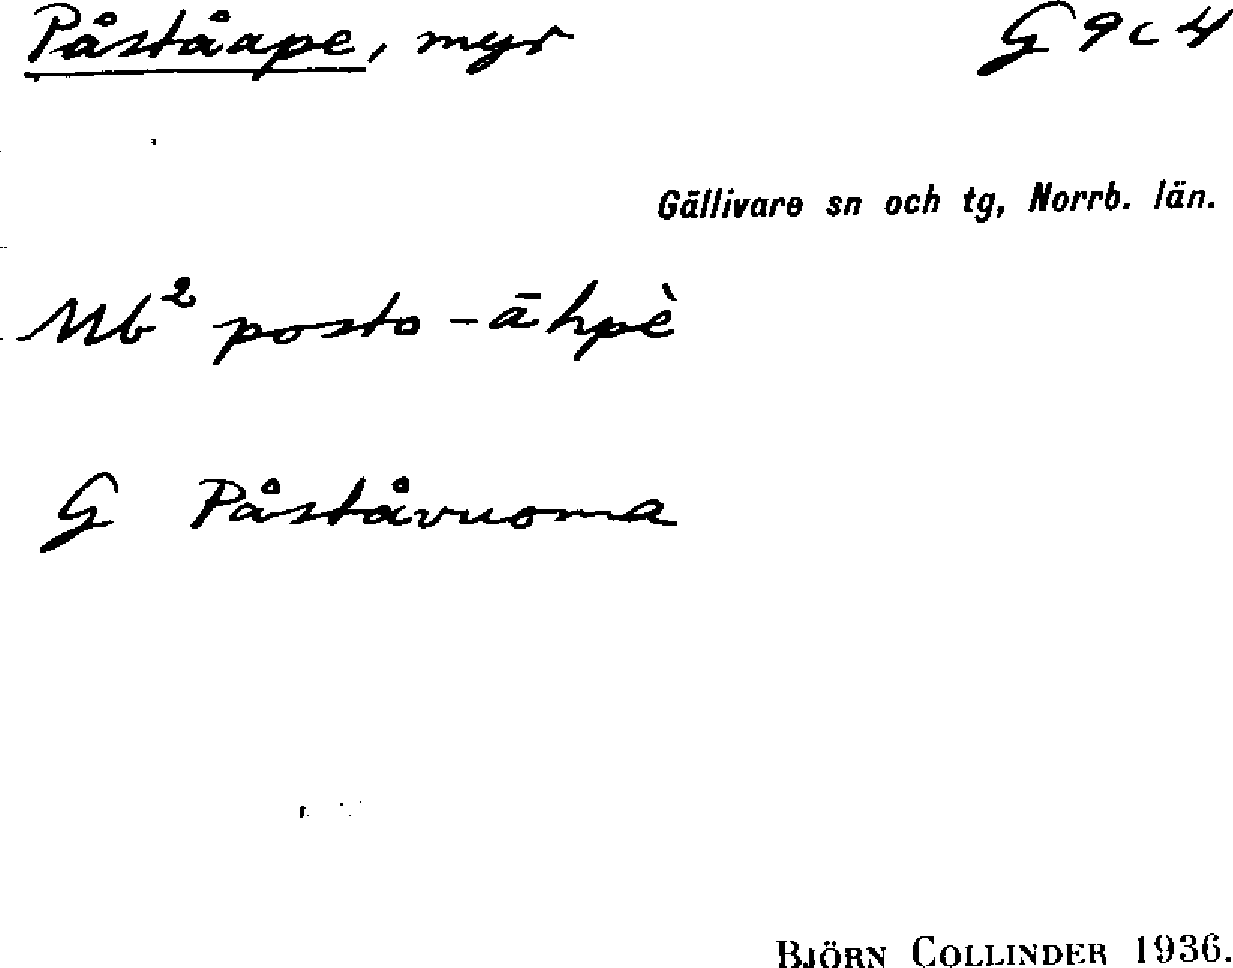 Påståape, myr G 9 c 4
Gällivare sn och tg, Norrb. län.
Nb² posto-āhpè
G Påståvuoma
BJÖRN COLLINDER 1936.